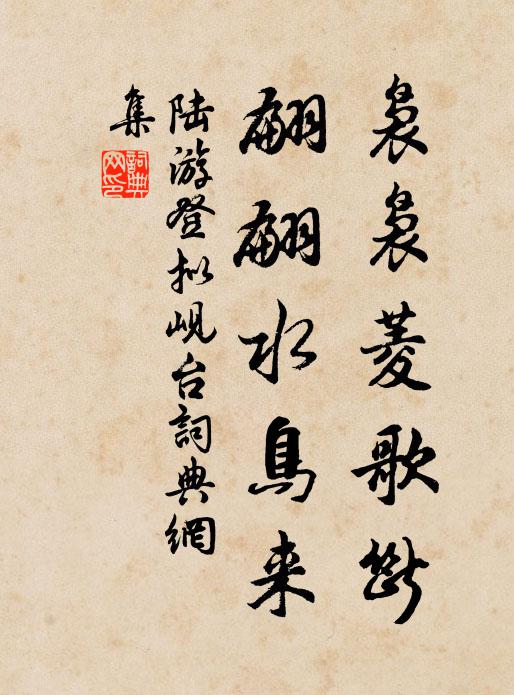 袅袅菱歌断
翩翩水鸟来
陆游登拟岘台詞典網
集
詞典網印